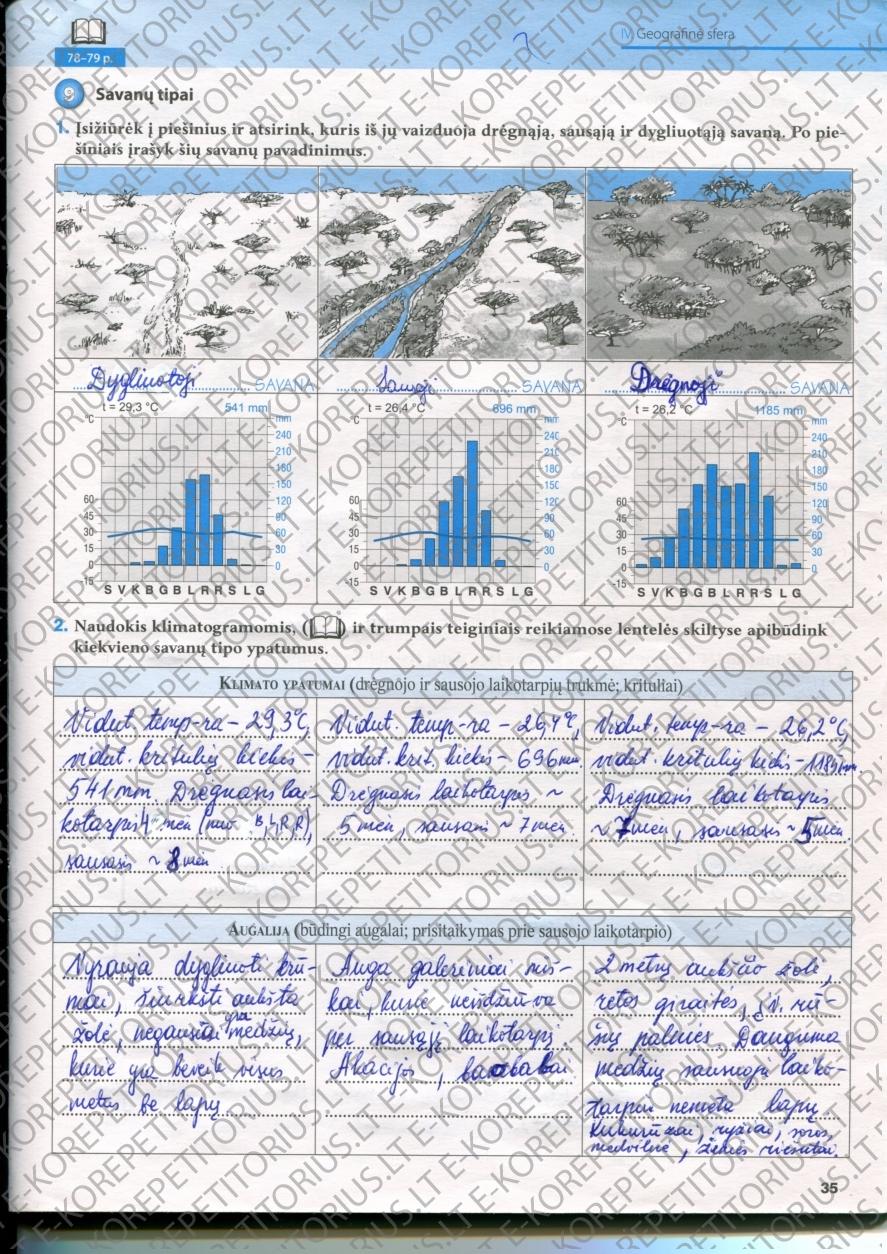 IV Geografinė sfera
78–79 p.
9 Savanų tipai
1. Įsižiūrėk į piešinius ir atsirink, kuris iš jų vaizduoja drėgnąją, sausąją ir dygliuotąją savaną. Po pie-
šiniais įrašyk šių savanų pavadinimus.
Dygliuotoji SAVANA
Sausoji SAVANA
Drėgnoji SAVANA
t = 29,3 °C 541 mm
°C mm
240
210
180
150
120
60 90
45 60
30 30
15 0
0
-15
S V K B G B L R R S L G
t = 26,4 °C 696 mm
°C mm
240
210
180
150
120
60 90
45 60
30 30
15 0
0
-15
S V K B G B L R R S L G
t = 26,2 °C 1185 mm
°C mm
240
210
180
150
120
60 90
45 60
30 30
15 0
0
-15
S V K B G B L R R S L G
2. Naudokis klimatogramomis, ( ) ir trumpais teiginiais reikiamose lentelės skiltyse apibūdink
kiekvieno savanų tipo ypatumus.
KLIMATO YPATUMAI (drėgnojo ir sausojo laikotarpių trukmė; krituliai)
Vidut. temp-ra – 29,3°C,
vidut. kritulių kiekis –
541 mm. Drėgnasis lai-
kotarpis 4 mėn (nuo B, L, R, R),
sausasis ~ 8 mėn
Vidut. temp-ra – 26,4°C,
vidut. krit. kiekis – 696 mm.
Drėgnasis laikotarpis ~
5 mėn, sausasis ~ 7 mėn.
Vidut. temp-ra – 26,2°C,
vidut. kritulių kiekis – 1185 mm.
Drėgnasis laikotarpis
~ 7 mėn, sausasis ~ 5 mėn.
AUGALIJA (būdingi augalai; prisitaikymas prie sausojo laikotarpio)
Vyrauja dygliuoti krū-
mai, šiurkšti aukšta
žolė, negausiai yra medžių,
kurie yra beveik visus
metus be lapų
Auga galeriniai miš-
kai, kurie neišdžiūva
per sausąjį laikotarpį.
Akacijos, baobabai
2 metrų aukščio žolė,
retos giraitės, įv. rū-
šių palmės. Dauguma
medžių sausuoju laiko-
tarpiu nemeta lapų.
Kukurūzai, ryžiai, soros,
medvilnė, žemės riešutai.
35
E-KOREPETITORIUS.LT